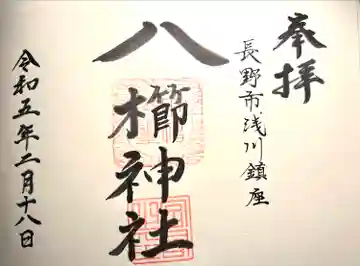 奉拝
長野市浅川鎮座
八櫛神社
令和五年二月十八日